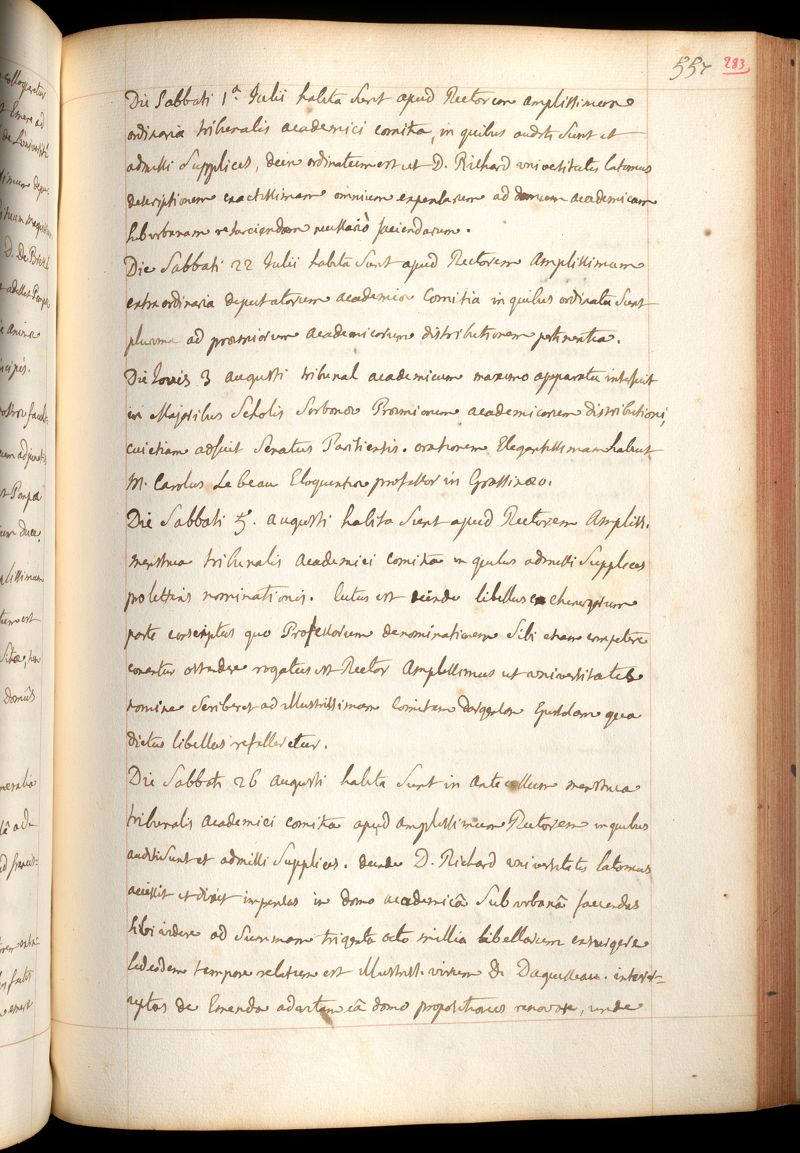 557 283
Die Sabbati 1a. Julii habita sunt apud Rectorem amplissimum
ordinaria tribunalis academici comitia, in quibus auditi sunt et
admissi supplices, dein ordinatum est ut D. Richard universitatis latomus
descriptionem exactissimam omnium expensarum ad domum academicam
suburbanam resarciendam necessariò faciendarum.
Die Sabbati 22 Julii habita sunt apud Rectorem Amplissimum
extraordinaria deputatorum academiæ Comitia in quibus ordinata sunt
plurima ad præmiorum academicorum distributionem pertinentia.
Die Jovis 3 augusti tribunal academicum maximo apparatu interfuit
in Majoribus Scholis Sorbonæ Præmiorum academicorum distributioni,
cui etiam adfuit Senatus Parisiensis. orationem Elegantissimam habuit
M. Carolus Le beau Eloquentiæ professor in Grassinæo.
Die Sabbati 5. augusti habita sunt apud Rectorem Ampliss.
menstrua tribunalis Academici comitia in quibus admissi supplices
pro litteris nominationis. lectus est deinde libellus ex
parte conscriptus quo Professorum denominationem sibi etiam competere
conantur ostendere rogatus est Rector Amplissimus ut universitatis
nomine scriberet ad illustrissimum Comitem Dargenson Epistolam qua
dictus libellus refelleretur.
Die Sabbati 26 augusti habita sunt in antecessum menstrua
tribunalis Academici comitia apud amplissimum Rectorem in quibus
auditi sunt et admissi supplices. deinde D. Richard universitatis latomus
accessit et dixit impensas in domo academicâ suburbanâ faciendas
sibi videre ad summam triginta octo millia libellarum exsurgere
sed eodem tempore relatum est illustriss. virum D. Daguesseau. interr-
ruptas de Emenda ad vitam eâ domo propositiones renovare, unde